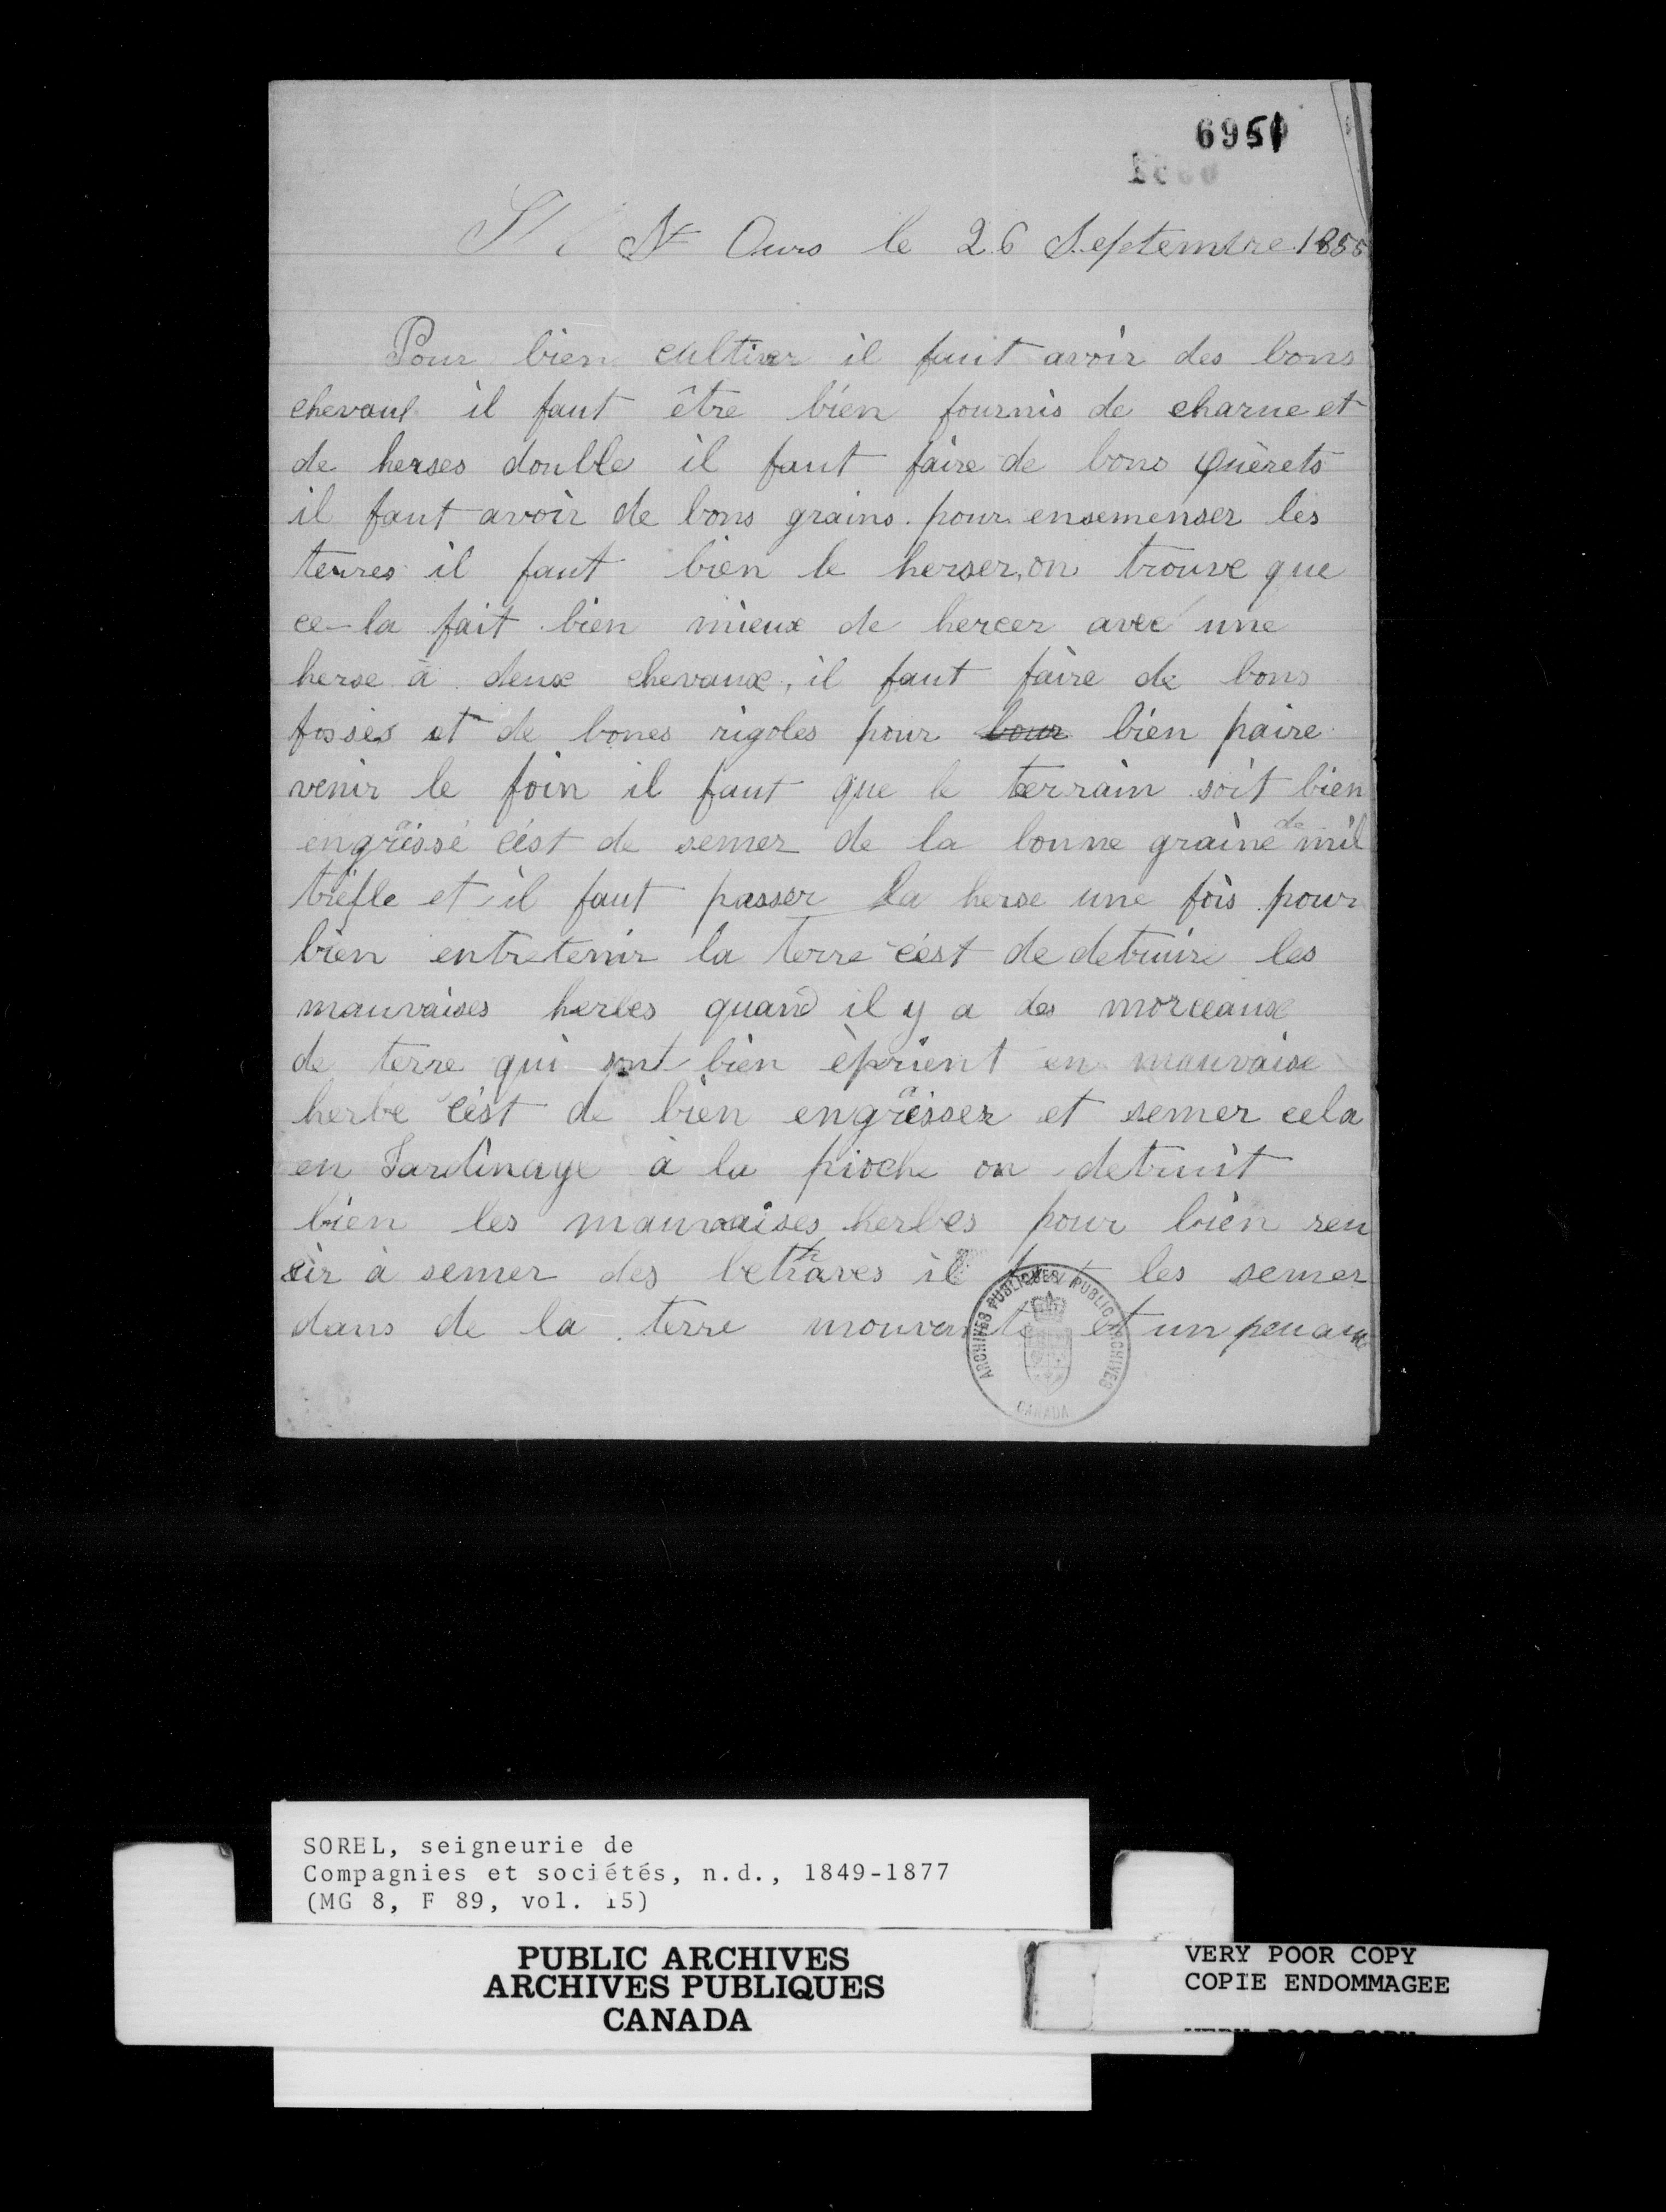 6951
St Ours le 26 Septembre 1855
Pour bien cultiver il faut avoir des bons
chevaux il faut être bien fournis de charue et
de herses double il faut faire de bons quèrets
il faut avoir de bons grains pour ensemenser les
terres il faut bien le herser, on trouve que
ce-la fait bien mieux de hercer avec une
herse à deux chevaux, il faut faire de bons
fossés et de bones rigoles pour bien faire
venir le foin il faut que le terrain soit bien
engrêssé cést de semer de la bonne graine de mil
trèfle et il faut passer la herse une fois pour
bien entretenir la terre cést de detruire les
mauvaises herbes quand il y a des morceaux
de terre qui sont bien en mauvaise
herbe cést de bien engrêsser et semer cela
en Jardinage à la pioche on detruit
bien les mauvaises herbes pour bien reu
sir à semer des betraves il faut les semer
dans de la terre mouvante et un peu
ARCHIVES PUBLIQUES / PUBLIC ARCHIVES
CANADA
SOREL, seigneurie de
Compagnies et sociétés, n.d., 1849-1877
(MG 8, F 89, vol. 15)
PUBLIC ARCHIVES
ARCHIVES PUBLIQUES
CANADA
VERY POOR COPY
COPIE ENDOMMAGEE
VERY POOR COPY